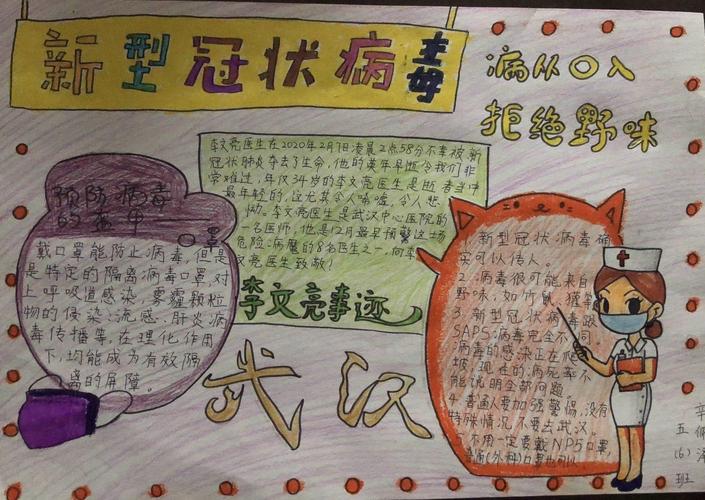 新型冠状病毒
病从口入
拒绝野味
李文亮医生在2020年2月7日凌晨2点58分不幸被新
冠状肺炎夺去了生命，他的英年早逝令我们非
常难过，年仅34岁的李文亮医生是逝者当中
最年轻的，这尤其令人唏嘘，令人悲
恸。李文亮医生是武汉中心医院的
一名医师，他是12月最早预警这场
危险病魔的8名医生之一，向李
文亮医生致敬！
李文亮事迹
预防病毒
的
口罩
戴口罩能防止病毒，但是
是特定的隔离病毒口罩，对
上呼吸道感染，雾霾颗粒
物的侵染，流感、肝炎病
毒传播等，在理化作用
下，均能成为有效隔
离的屏障。
武汉
1.新型冠状病毒确
实可以传人。
2.病毒很可能来自
野味，如竹鼠、獾等
3.新型冠状病毒跟
SAPS病毒完全不同，
病毒的感染正在爬
坡，现在的病死率不
能说明全部问题
4.普通人要加强警惕，没有
特殊情况不要去武汉，
5.不用一定要戴NP5口罩，
普通(外科)口罩也可以
五
(6)
班